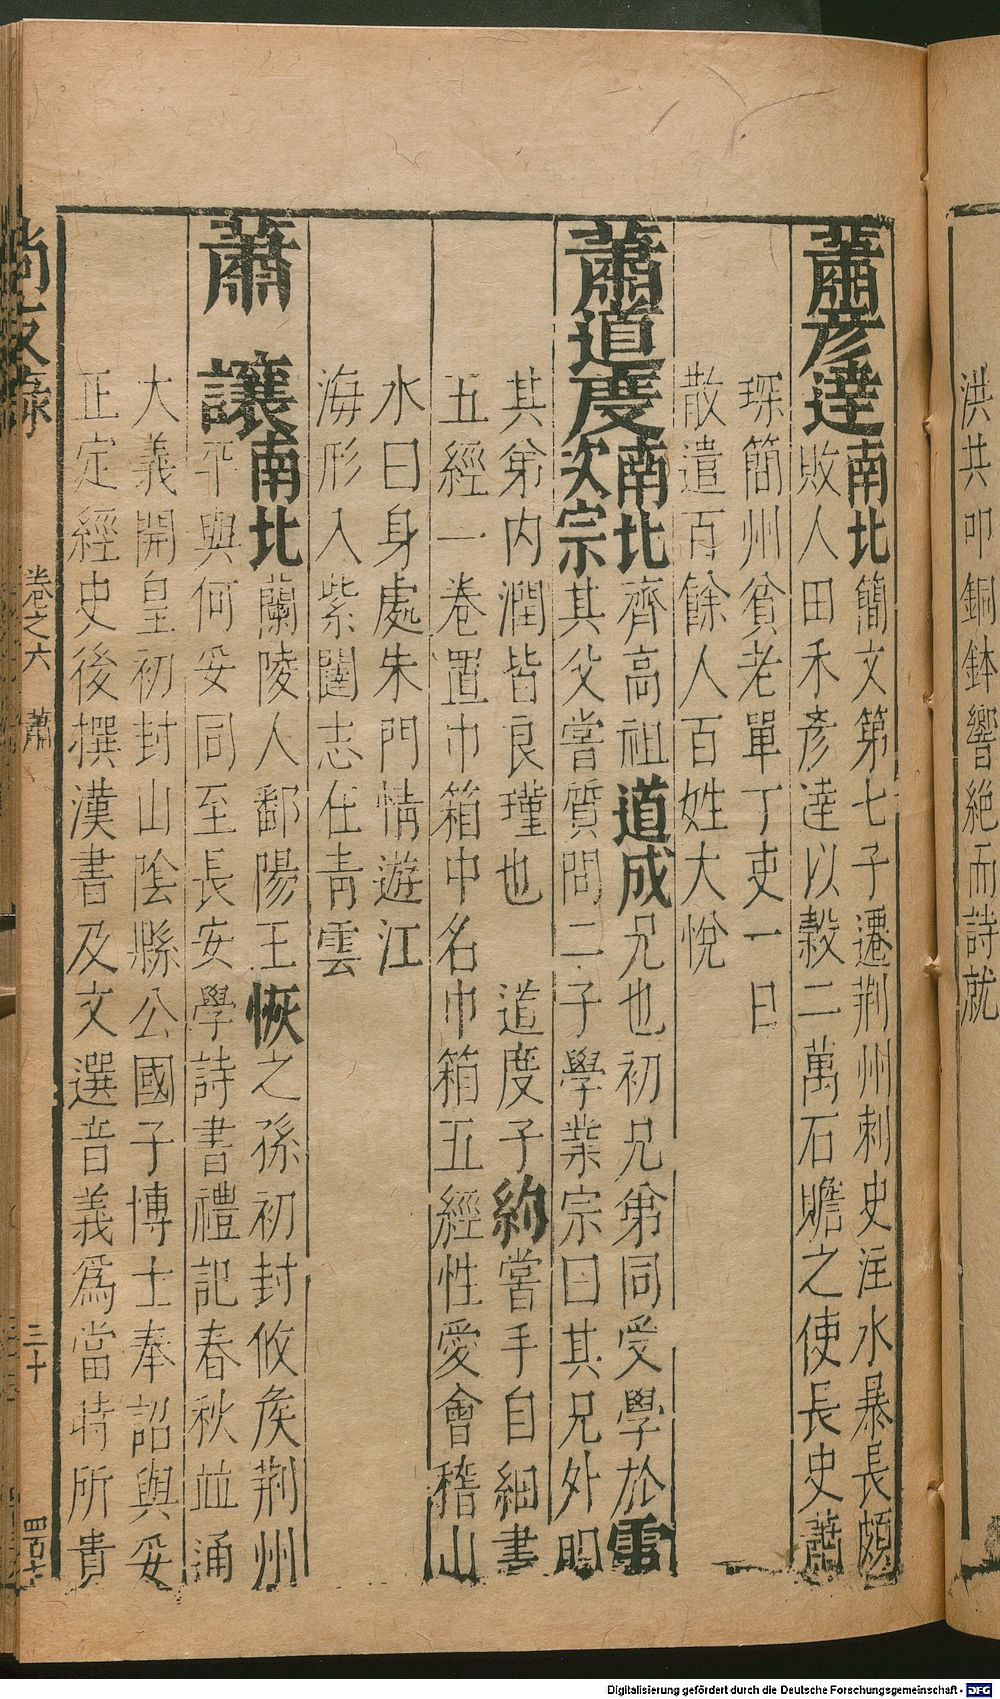 洪共叩銅鉢響絶而詩就
蕭彦達南北簡文第七子遷荆州刺史注水暴長頗
敗人田禾彦達以穀二萬石贍之使長史蕭
琛簡州貧老單丁吏一日
散遣百餘人百姓大悅
蕭道度南北齊高祖道成兄也初兄弟同受學於雷
次宗其父嘗質問二子學業宗曰其兄外明
其弟内潤皆良瑾也 道度子約嘗手自細書
五經一卷置巾箱中名巾箱五經性愛會稽山
水曰身處朱門情遊江
海形入紫闥志在青雲
蕭讓南北蘭陵人鄱陽王恢之孫初封攸侯荆州
平與何妥同至長安學詩書禮記春秋並通
大義開皇初封山陰縣公國子博士奉詔與妥
正定經史後撰漢書及文選音義爲當時所貴
尚友錄 卷之六 蕭 三十
Digitalisierung gefördert durch die Deutsche Forschungsgemeinschaft - DFG